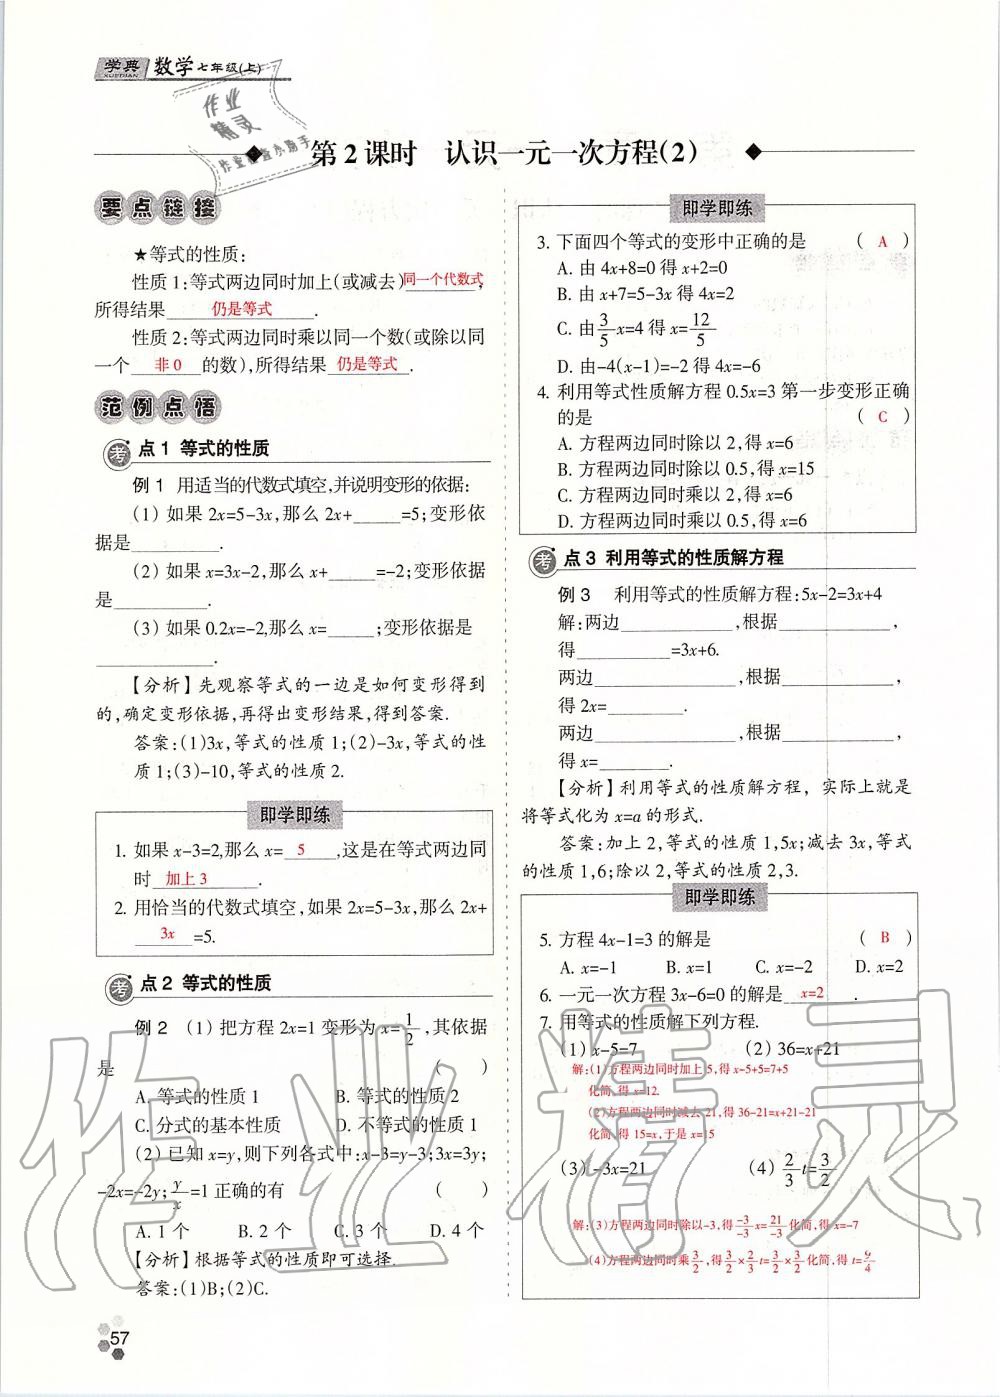 学典 XUEDIAN 数学 七年级(上)
第2课时 认识一元一次方程(2)
要点链接
★等式的性质:
性质1:等式两边同时加上(或减去)同一个代数式,
所得结果 仍是等式 .
性质2:等式两边同时乘以同一个数(或除以同
一个 非0 的数),所得结果 仍是等式 .
范例点悟
考点1 等式的性质
例1 用适当的代数式填空,并说明变形的依据:
(1) 如果2x=5-3x,那么2x+____=5;变形依
据是________.
(2) 如果x=3x-2,那么x+____=-2;变形依据
是________.
(3) 如果0.2x=-2,那么x=____;变形依据是
________.
【分析】先观察等式的一边是如何变形得到
的,确定变形依据,再得出变形结果,得到答案.
答案:(1)3x,等式的性质1;(2)-3x,等式的性
质1;(3)-10,等式的性质2.
即学即练
1. 如果x-3=2,那么x= 5 ,这是在等式两边同
时 加上3 .
2. 用恰当的代数式填空,如果2x=5-3x,那么2x+
3x =5.
考点2 等式的性质
例2 (1) 把方程2x=1变形为x=1/2,其依据
是 ( )
A. 等式的性质1 B. 等式的性质2
C. 分式的基本性质 D. 不等式的性质1
(2) 已知x=y,则下列各式中:x-3=y-3;3x=3y;
-2x=-2y;y/x=1正确的有 ( )
A. 1个 B. 2个 C. 3个 D. 4个
【分析】根据等式的性质即可选择.
答案:(1)B;(2)C.
57
即学即练
3. 下面四个等式的变形中正确的是 ( A )
A. 由4x+8=0得x+2=0
B. 由x+7=5-3x得4x=2
C. 由3/5x=4得x=12/5
D. 由-4(x-1)=-2得4x=-6
4. 利用等式性质解方程0.5x=3第一步变形正确
的是 ( C )
A. 方程两边同时除以2,得x=6
B. 方程两边同时除以0.5,得x=15
C. 方程两边同时乘以2,得x=6
D. 方程两边同时乘以0.5,得x=6
考点3 利用等式的性质解方程
例3 利用等式的性质解方程:5x-2=3x+4
解:两边________,根据________,
得________=3x+6.
两边________,根据________,
得2x=________.
两边________,根据________,
得x=________.
【分析】利用等式的性质解方程,实际上就是
将等式化为x=a的形式.
答案:加上2,等式的性质1,5x;减去3x,等式
的性质1,6;除以2,等式的性质2,3.
即学即练
5. 方程4x-1=3的解是 ( B )
A. x=-1 B. x=1 C. x=-2 D. x=2
6. 一元一次方程3x-6=0的解是 x=2 .
7. 用等式的性质解下列方程.
(1) x-5=7 (2) 36=x+21
解:(1)方程两边同时加上5,得x-5+5=7+5
化简,得x=12.
(2)方程两边同时减去21,得36-21=x+21-21
化简,得15=x,于是x=15
(3) -3x=21 (4) 2/3t=3/2
解:(3)方程两边同时除以-3,得-3/-3x=21/-3化简,得x=-7
(4)方程两边同时乘3/2,得3/2×2/3t=3/2×3/2化简,得t=9/4
作业精灵